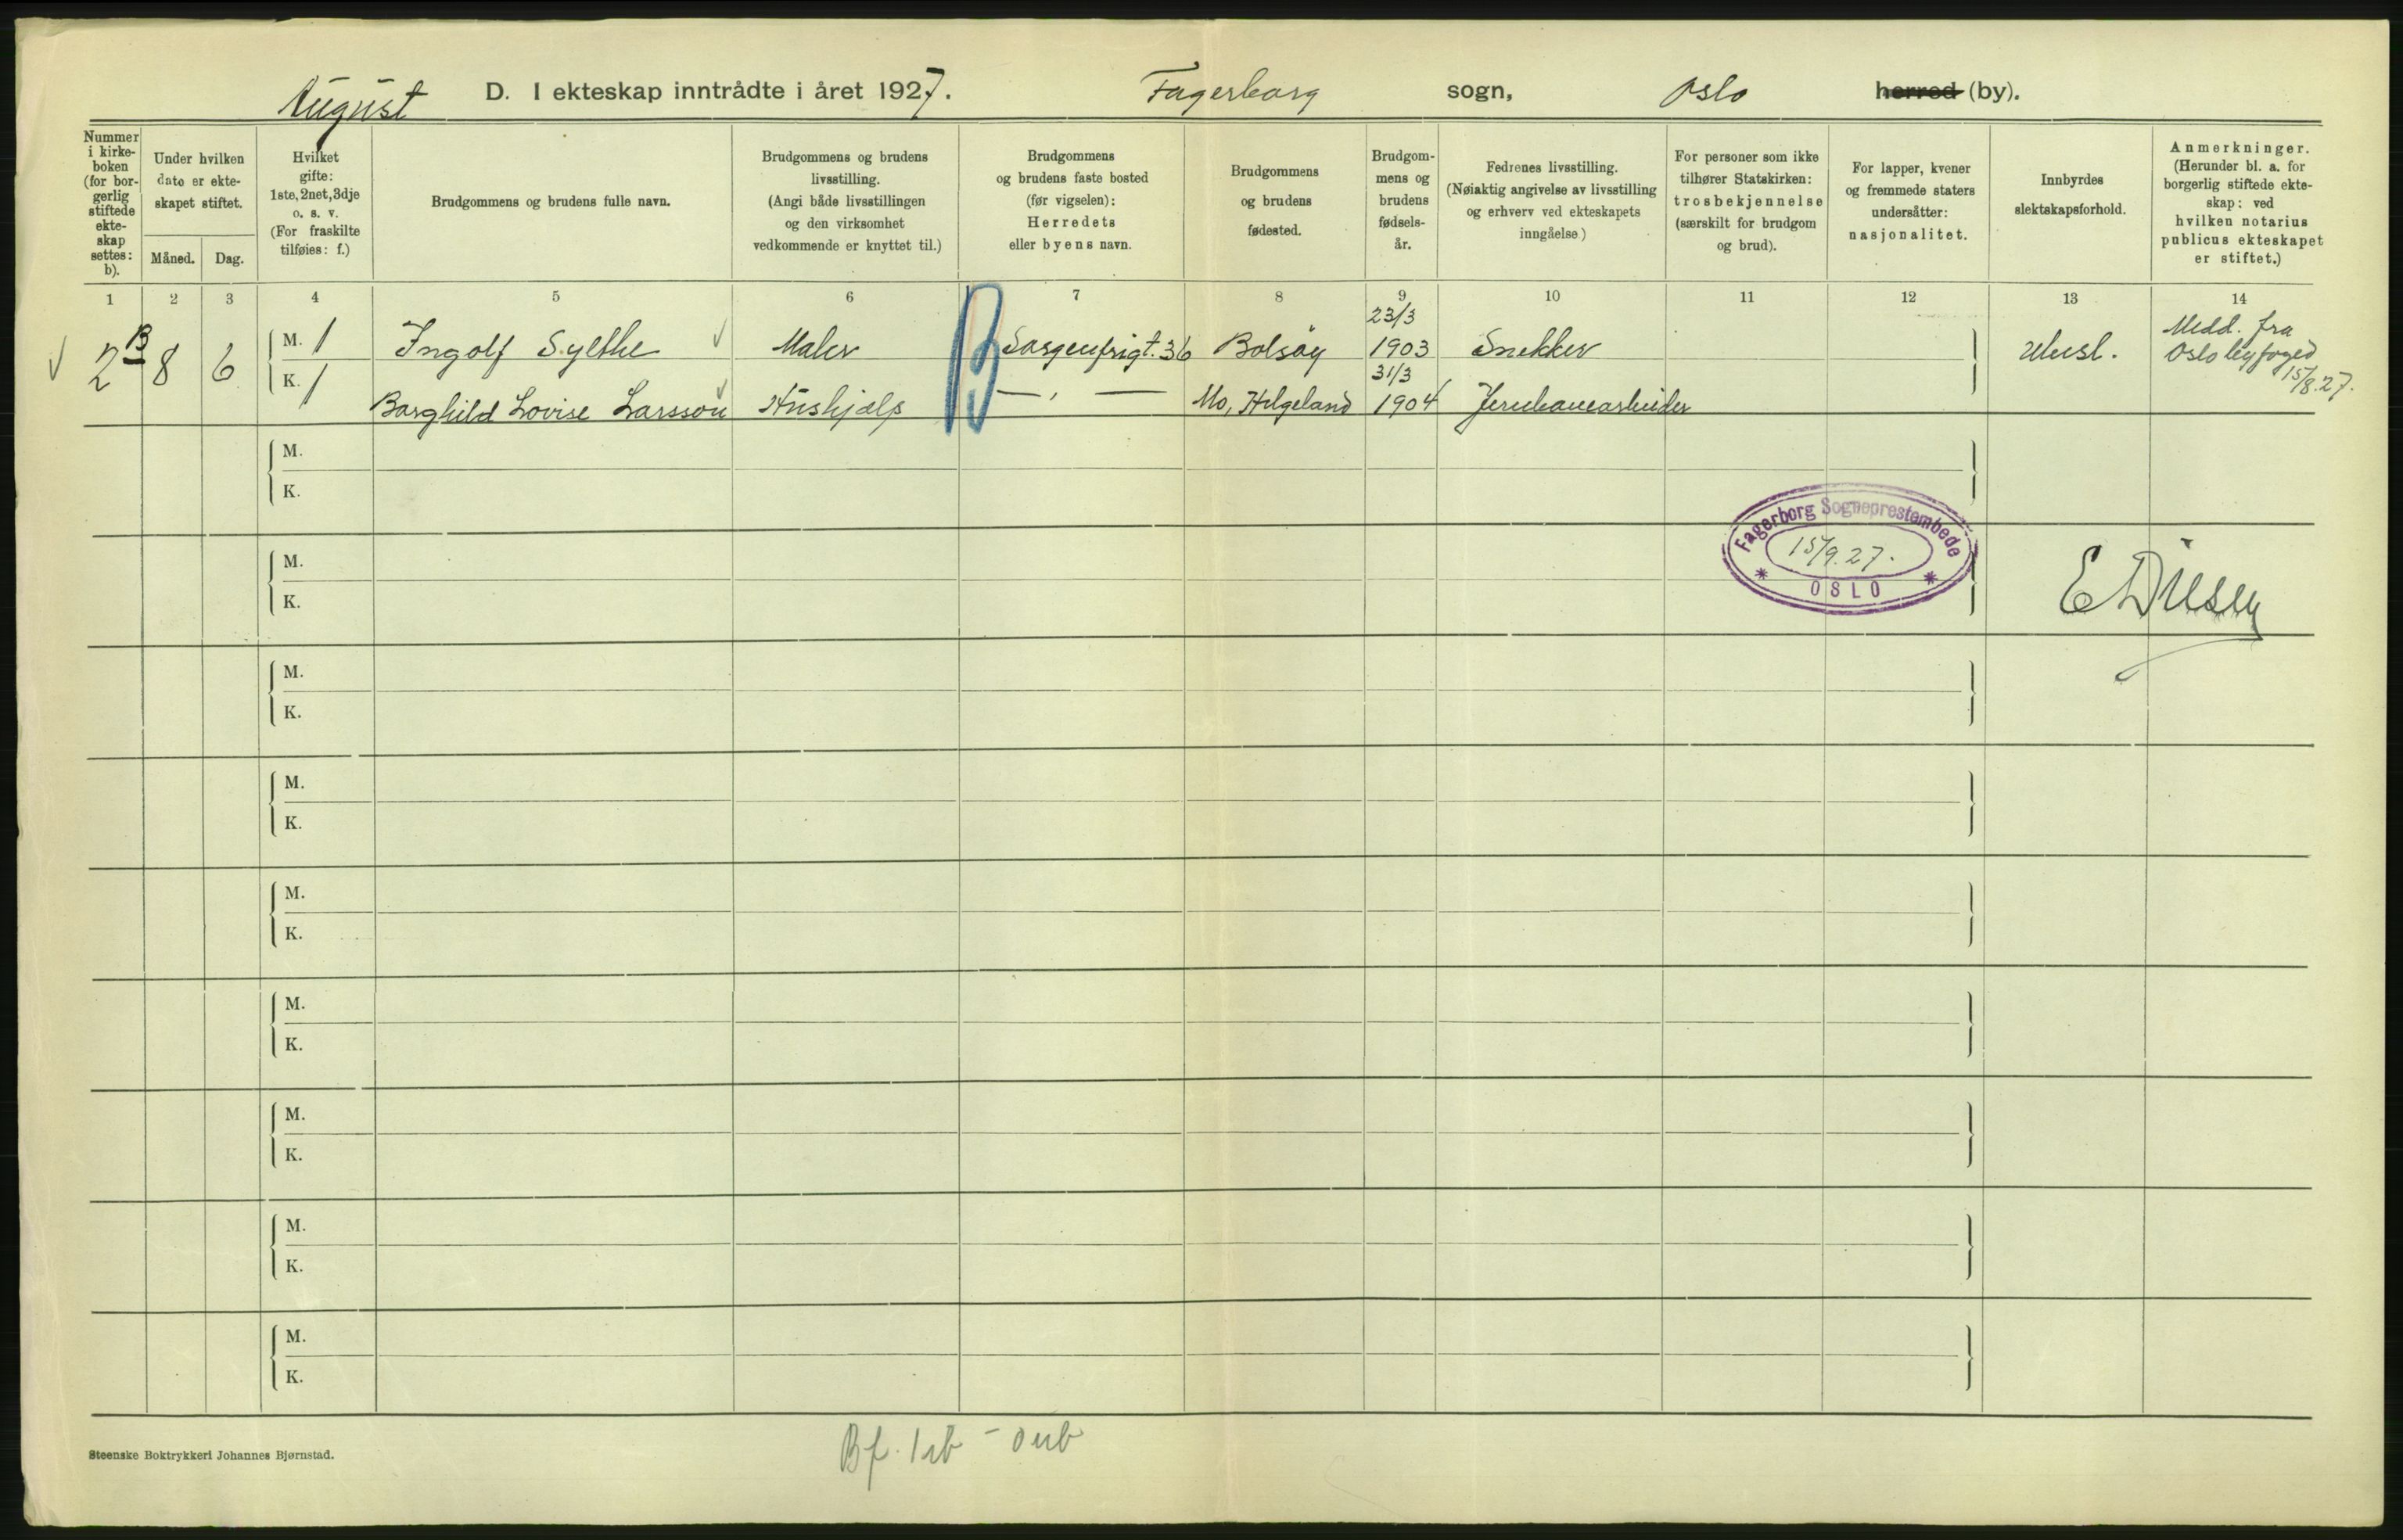 August D. I ekteskap inntrådte i året 1927. Fagerborg sogn, Oslo herred (by).
Nummer
i kirke-
boken
(for bor-
gerlig
stiftede
ekte-
skap
settes:
b).
Under hvilken
dato er ekte-
skapet stiftet.
Måned.
Dag.
Hvilket
gifte:
1ste, 2net, 3dje
o. s. v.
(For fraskilte
tilføies: f.)
Brudgommens og brudens fulle navn.
Brudgommens og brudens
livsstilling.
(Angi både livsstillingen
og den virksomhet
vedkommende er knyttet til.)
Brudgommens
og brudens faste bosted
(før vigselen):
Herredets
eller byens navn.
Brudgommens
og brudens
fødested.
Brudgom-
mens og
brudens
fødsels-
år.
Fedrenes livsstilling.
(Nøiaktig angivelse av livsstilling
og erhverv ved ekteskapets
inngåelse)
For personer som ikke
tilhører Statskirken:
trosbekjennelse
(særskilt for brudgom
og brud).
For lapper, kvener
og fremmede staters
undersåtter:
nasjonalitet.
Innbyrdes
slektskapsforhold.
Anmerkninger.
(Herunder bl. a. for
borgerlig stiftede ekte-
skap: ved
hvilken notarius
publicus ekteskapet
er stiftet.)
1 2 3 4 5 6 7 8 9 10 11 12 13 14
√ 2 B 8 6 M. 1 Ingolf Sylthe √ Maler B Sorgenfrigt. 36 Bolsøy 23/3 1903 Snekker Ubesl. Medd. fra
Oslo byfoged
15/8.27.
K. 1 Borghild Lovise Larsson √ Hushjælp — , — Mo, Helgeland 31/3 1904 Jernbanearbeider
M.
K.
M.
K.
Fagerborg Sogneprestembede
15/9.27.
* OSLO *
M.
K.
M.
K.
M.
K.
M.
K.
M.
K.
M.
K.
M.
K.
Steenske Boktrykkeri Johannes Bjørnstad.